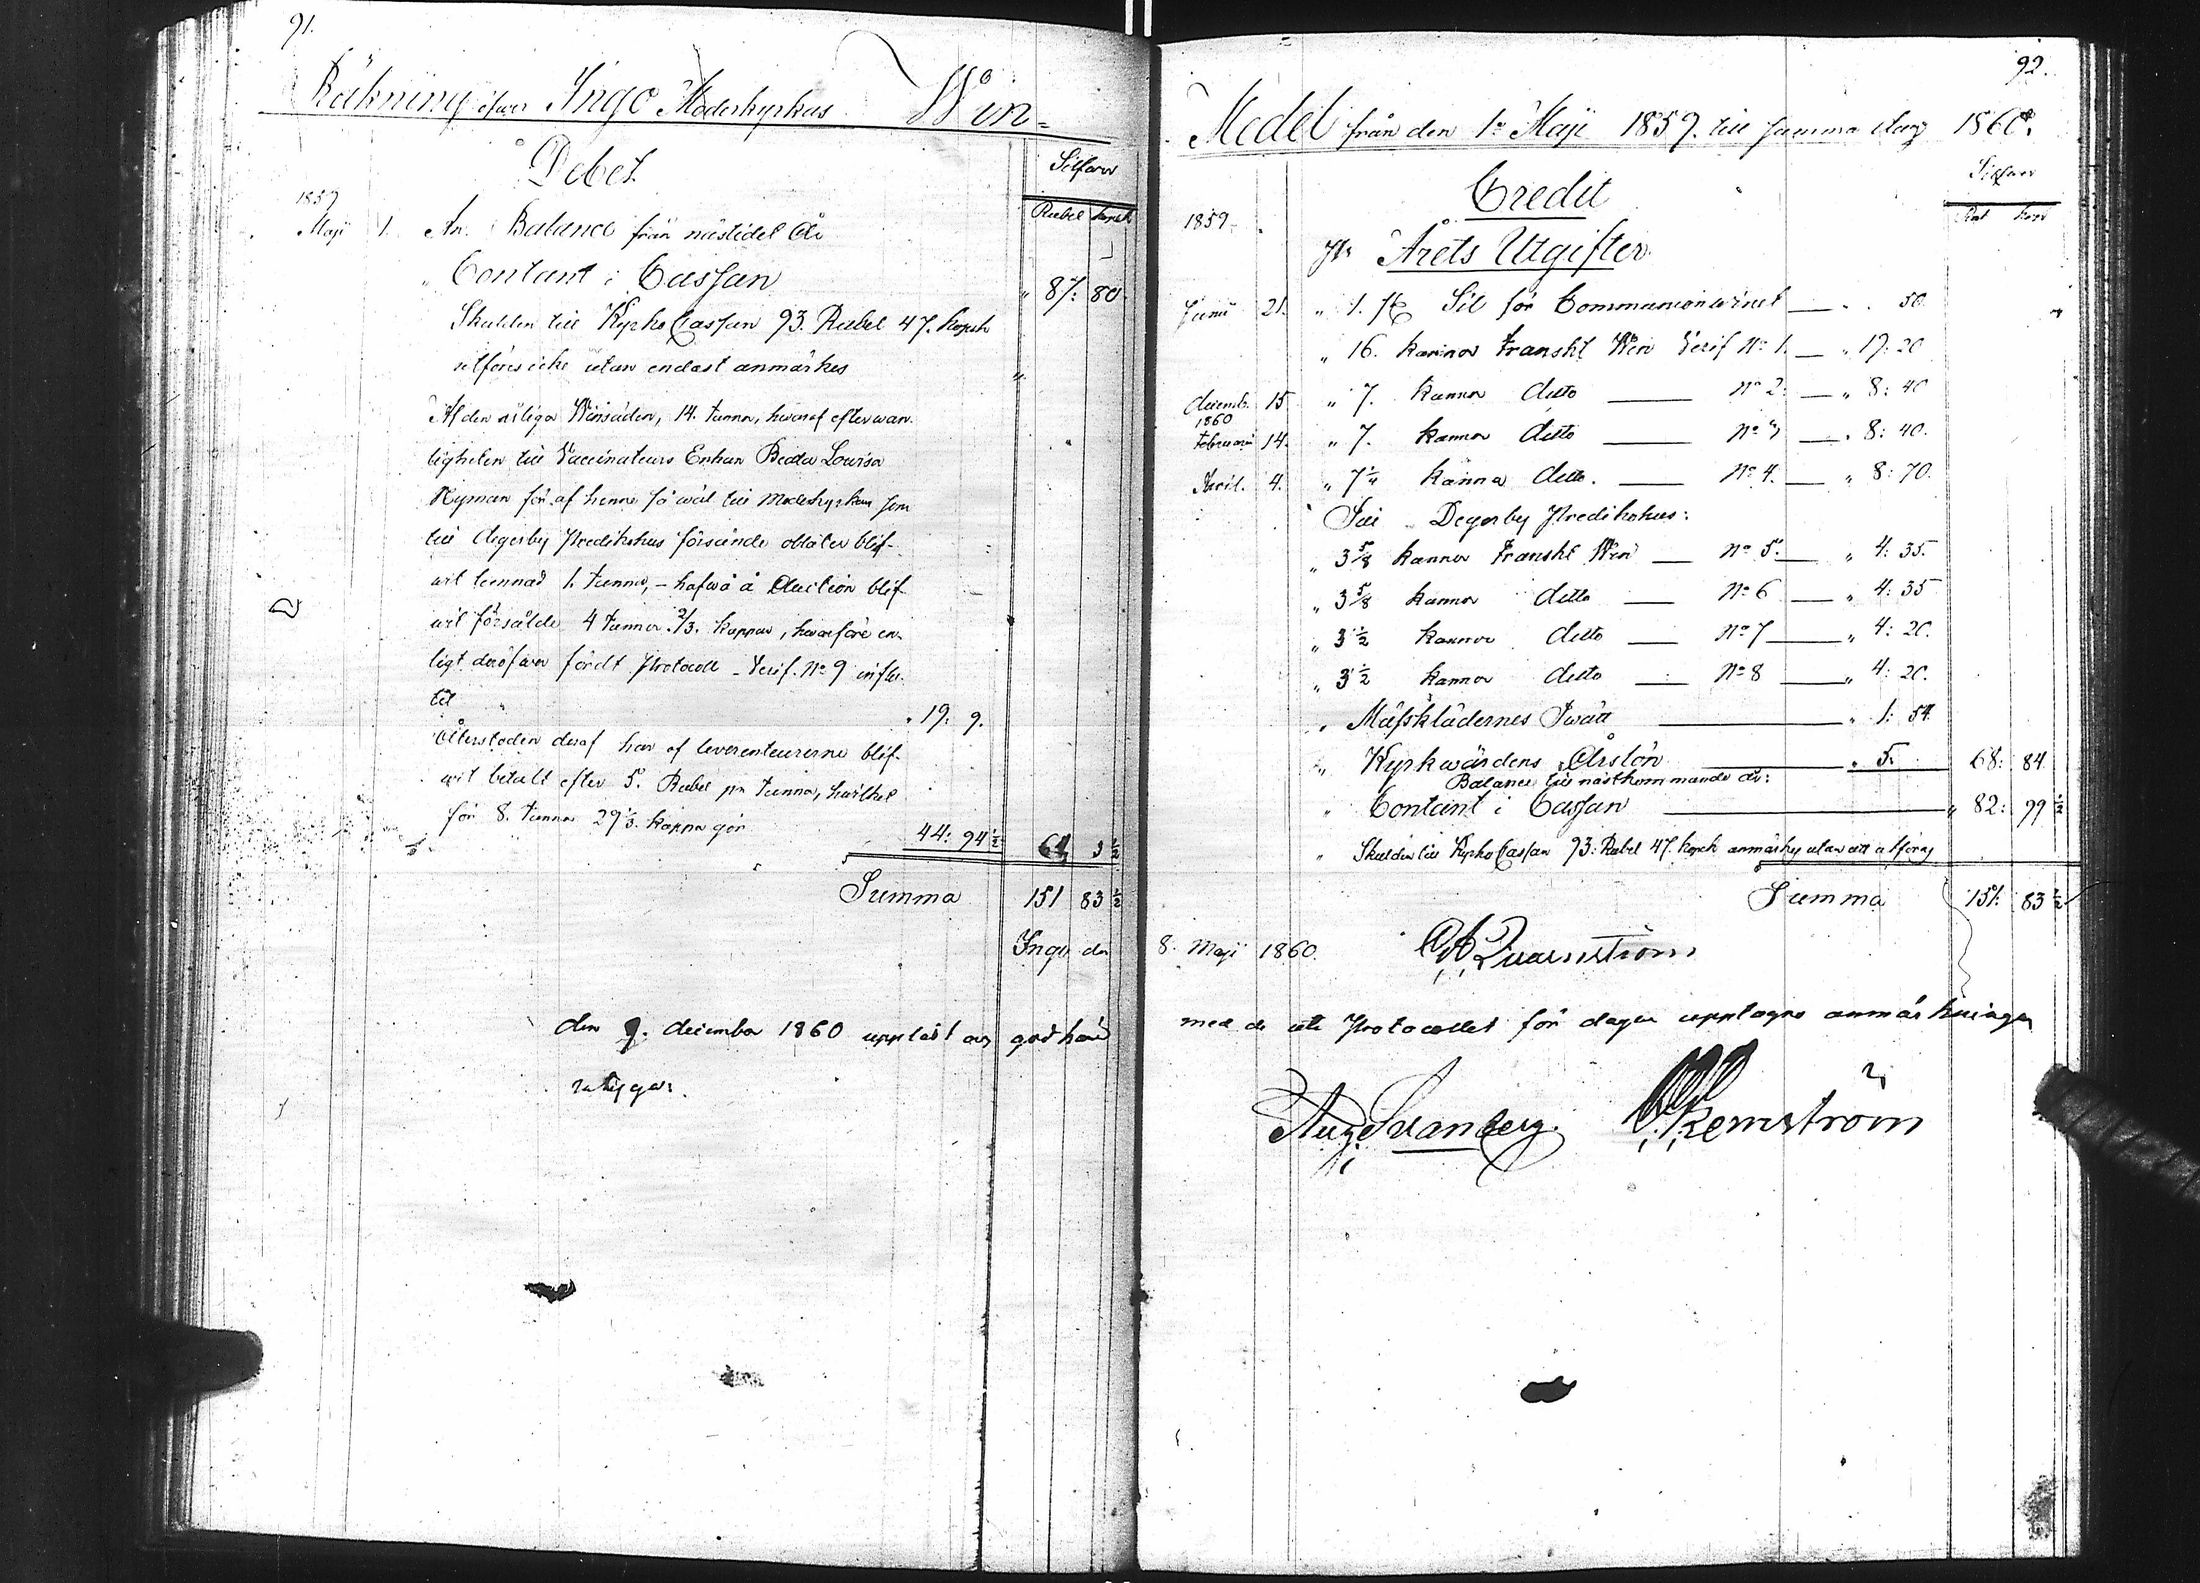 91.
Räkning öfwer Ingo Moderkyrkas Win-
Debet
Silfwer
Rubel kopek
1859
Maji 1. An Balance från nästledet År
" Contant i Cassan " 87: 80.
Skulden till KyrkoCassan 93. Rubel 47. kopek
utföres icke utan endast anmärkes "
Af den årliga Winsäden, 14. tunnor, hwaraf efter wan-
ligheten till Vaccinateurs Enkan Beata Lowisa
Nyman för af henne så wäl till Moderkyrkan som
till Degerby Predikohus försände oblater blif-
wit lemnad 1. tunna, - hafwa å Auction blif-
wit försålde 4 tunnor 2/3. kappar, hwarföre en-
ligt deröfwer fördt Protocoll - Verif. No 9 influ-
tit " 19: 9.
Återstoden deraf har af leverenteurerne blif-
wit betalt efter 5. Rubel pr tunna, hwilket
för 8. tunnor 29 1/3. kappa gör 44: 94 1/2 64, 3 1/2
Summa 151 83 1/2
Ingo den
den 9. december 1860 uppläst och godkänd
92.
Medel från den 1a Maji 1859. till samma dag 1860.
Credit
Silfwer
Rub kop
1859.
Pr Årets Utgifter
Junii 21. " 1. st Sil för Communionwinet — " 50
" 16. kannor Franskt Win Verif No 1. — " 19: 20
decemb. 15 " 7. kannor ditto — No 2: — " 8: 40
1860
Februarii 14. " 7. kannor ditto — No 3 — " 8: 40.
April. 4. " 7 1/4 kanna ditto. — No 4. — " 8: 70.
Till Degerby Predikohus:
" 3 5/8 kannor Franskt Win — No 5. — " 4: 35.
" 3 5/8 kannor ditto — No 6 — " 4: 35
" 3 1/2 kannor ditto — No 7 — " 4: 20.
" 3 1/2 kannor ditto — No 8 — " 4: 20.
" Mässklädernes Twätt — " 1: 54.
" Kyrkwärdens Årslön — " 5. 68: 84
Balance till nästkommande år:
" Contant i Cassan — " 82: 99 1/2
" Skulden till KyrkoCassan 93: Rubel 47. kopek anmärkes utan att utföras
Summa 151: 83 1/2
8. Maji 1860. Qvarnström
med de uti Protocollet för dagen upptagne anmärkningar
Aug. Svanberg. Renström